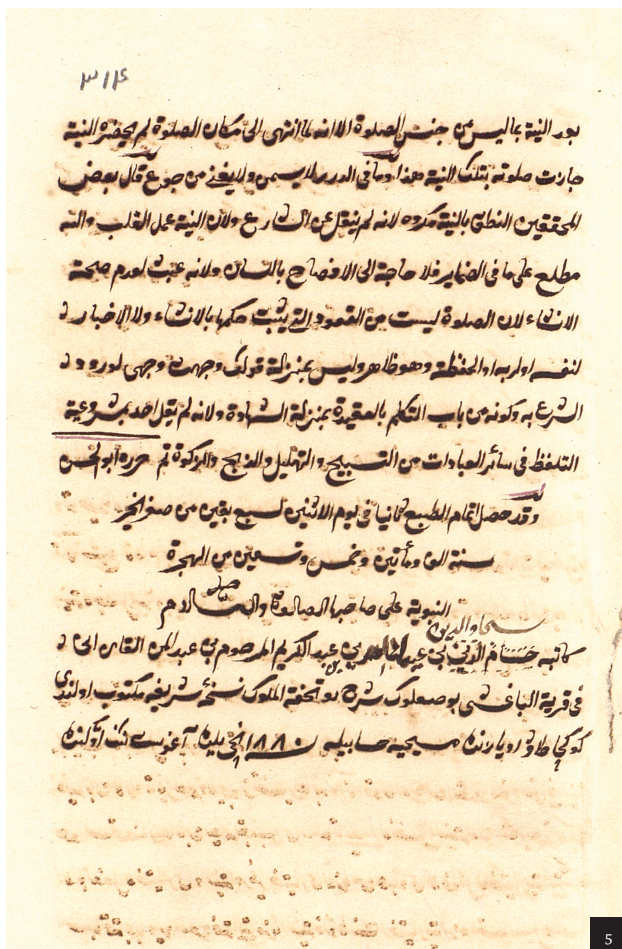 ٣١٤
بعد النية بما ليس من جنس الصلوة الا انه لما انتهى الى مكان الصلوة لم يحضره النية
جازت صلوته بتلك النية هذا وما في الدرر لا يسمن ولا يغني من جوع قال بعض
المحققين النطق بالنية مكروه لانه لم ينقل عن الشارع ولان النية عمل القلب والله
مطلع على ما في الضماير فلا حاجة الى الافصاح باللسان ولانه عبث لعدم صحة
الانشاء لان الصلوة ليست من العقود التي يثبت حكمها بالانشاء ولا الاخبار
لنفسه او لربه او الحفظة وهو ظاهر وليس بمنزلة قولك وجهت وجهى لورود
الشرع به وكونه من باب التكلم بالعقيدة بمنزلة الشهادة ولانه لم يقل احد بمشروعية
التلفظ في سائر العبادات من التسبيح والتهليل والذبح والزكوة تم حرره ابو الحسن
وقد حصل اتمام الطبع ثانيا في يوم الاثنين لسبع بقين من صفر الخير
سنة الف ومأتين وخمس وتسعين من الهجرة
النبوية على صاحبها الصلوة والسلام
كاتبه حسام الدين بن عبد الكريم المرحوم بن عبد
في قرية شرح تحفة الملوك نسخۀ شريفه مكتوب اولندى
مسيحيه حسابيله ١٨٨٠ نجى يلده آغوست